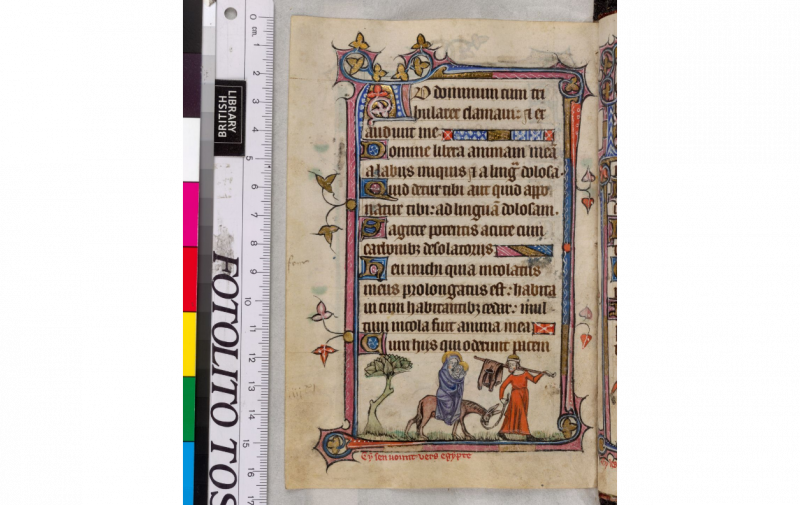 LIBRARY
BRITISH
FOTOLITO TOS
0 cm.
1
2
3
4
5
6
7
8
9
10
11
12
13
14
15
16
17
AD dominum cum tri
bularer clamaui: ⁊ ex
audiuit me
Domine libera animam meā
a labijs iniquis ⁊ a lingᷓ dolosa.
Quid detur tibi aut quid appo
natur tibi: ad linguā dolosam.
Sagitte potentis acute cum
carbonibȝ desolatorijs
Heu michi quia incolatus
meus prolongatus est: habita
ui cum habitantibȝ cedar: ml̄
tum incola fuit anima mea
Cum hijs qui oderunt pacem
Cy sen uount uers egypte